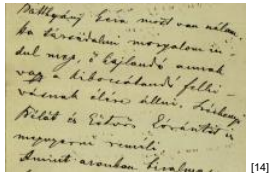 Batthyány Géza most van nálam.
ha társadalmi mozgalom in-
dul meg, ő hajlandó annak
vagy a kibocsátandó felhí-
vásnak élére állni. Széchenyi
Bélát és Eötvös Lórántot is
megnyerni reméli.
Amint azonban
[14]